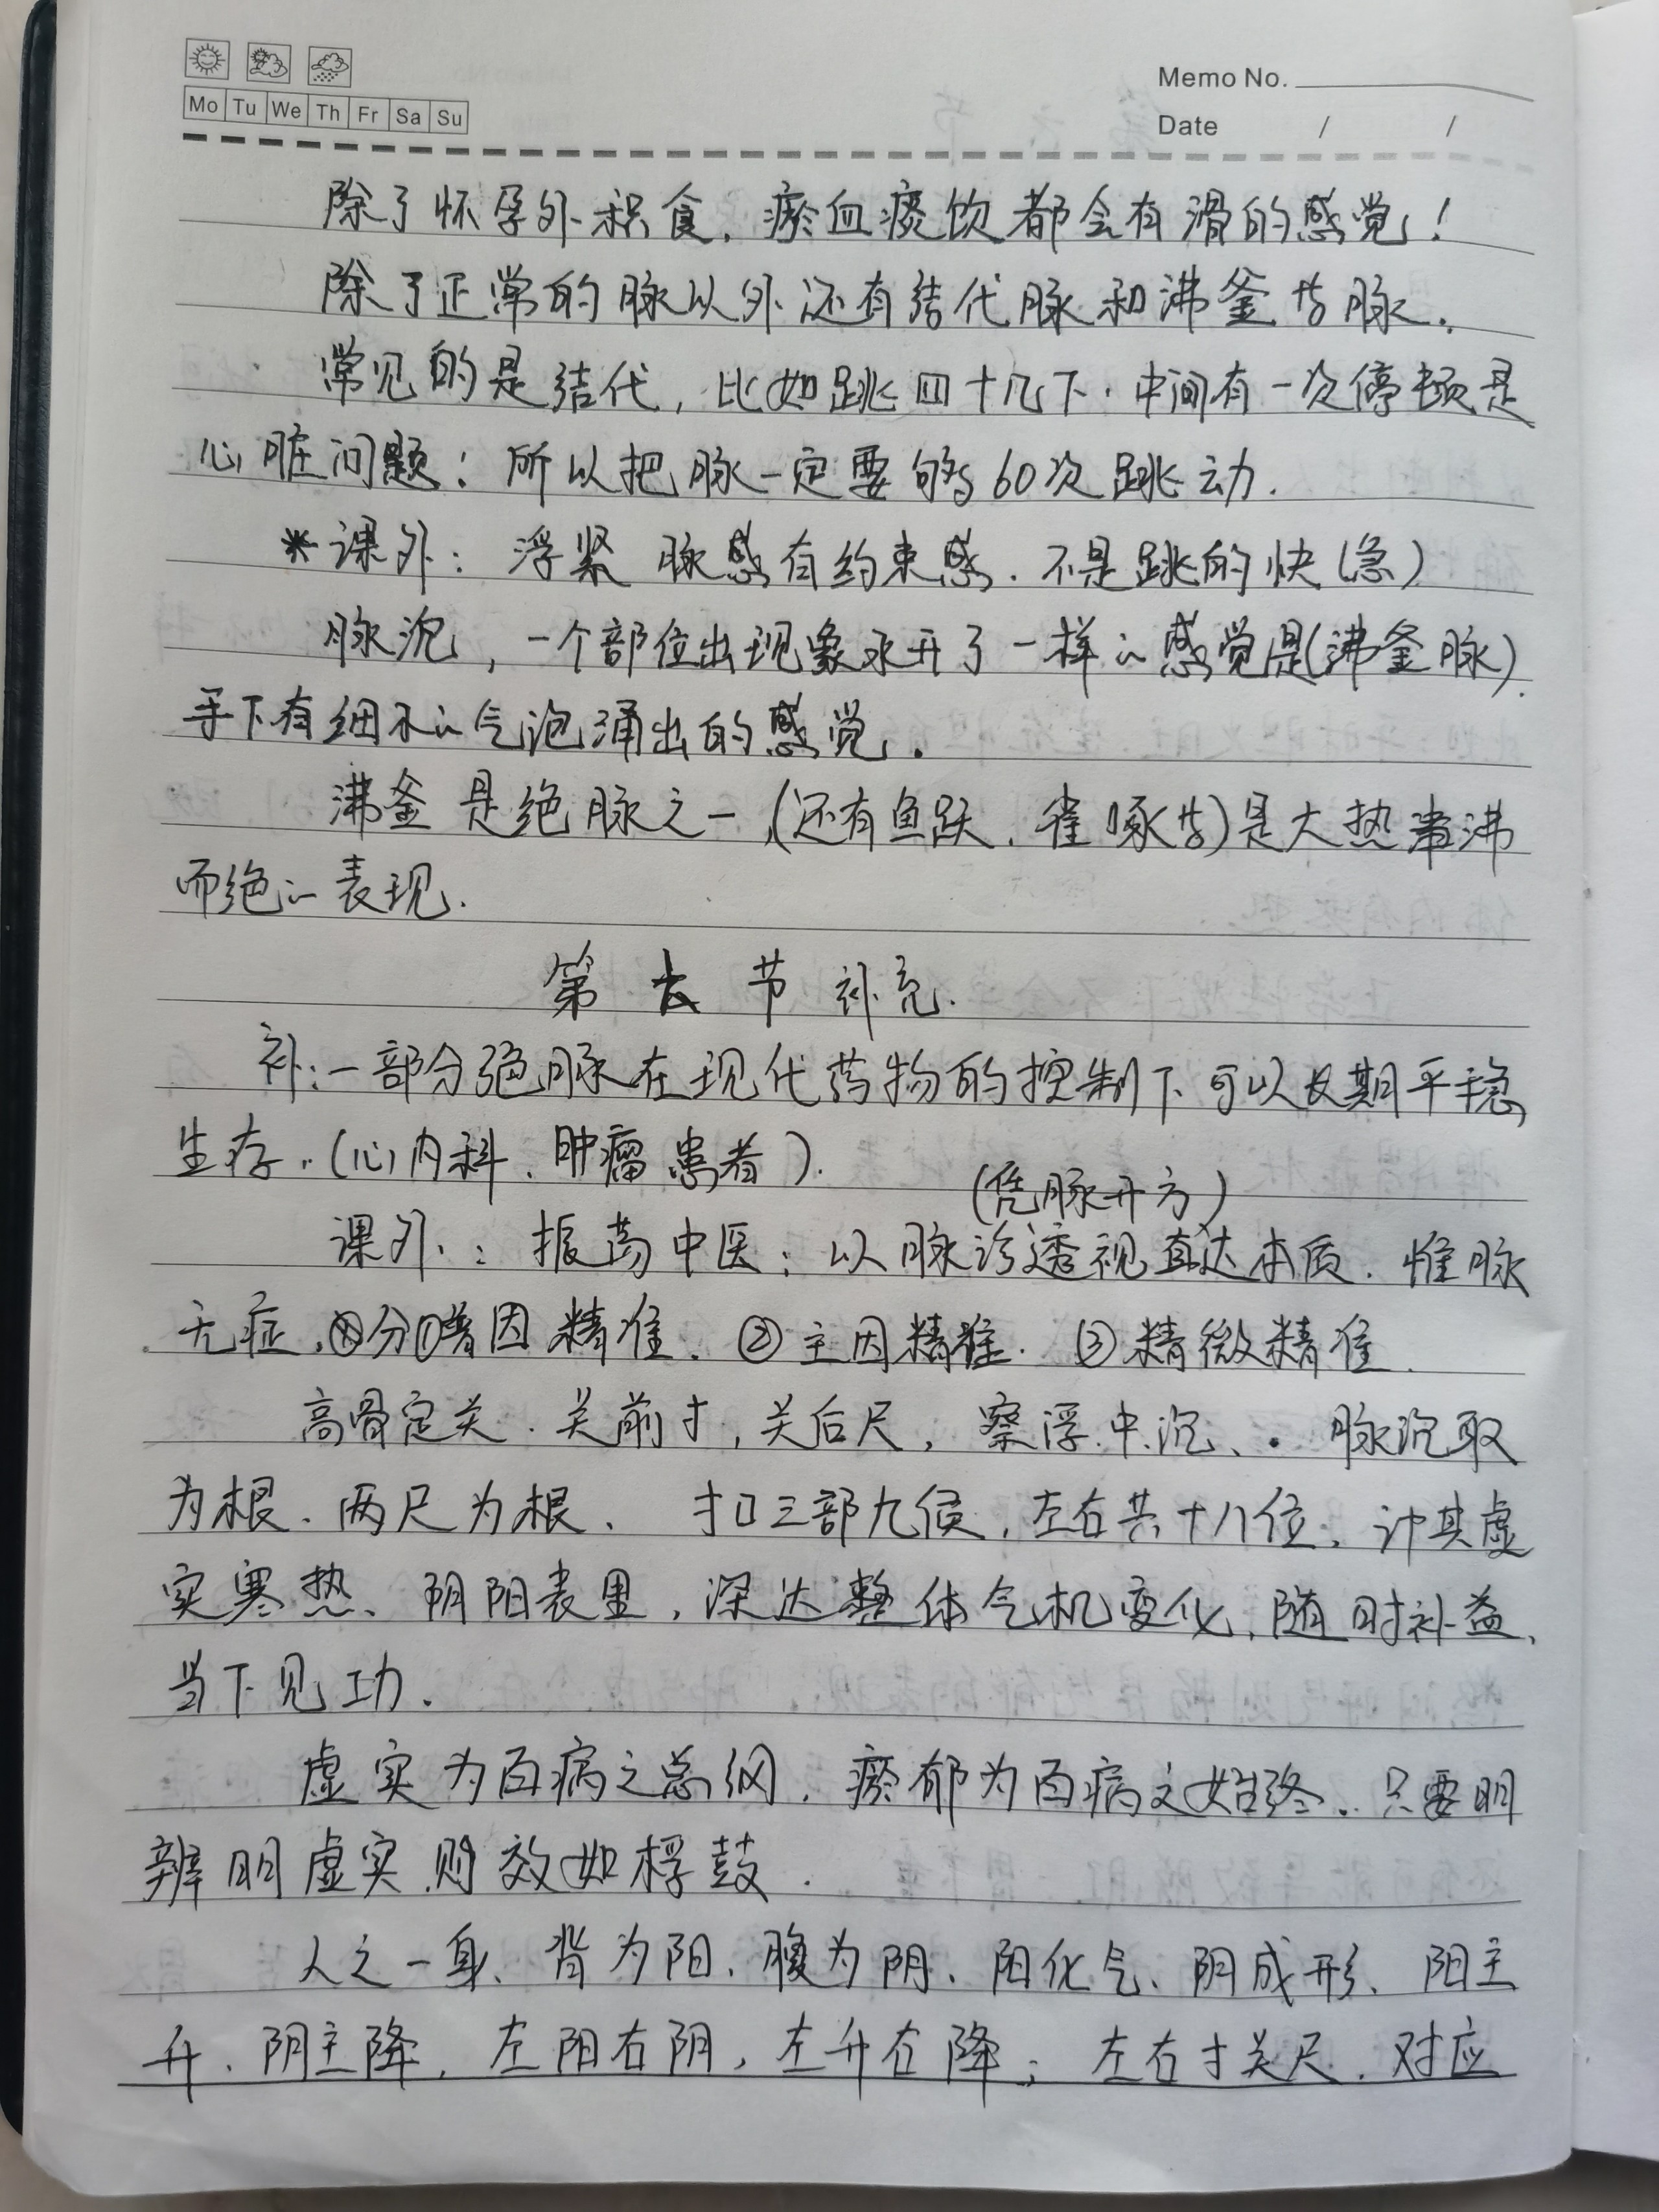 Mo Tu We Th Fr Sa Su
Memo No.
Date / /
除了怀孕外积食，瘀血痰饮都会有滑的感觉！
除了正常的脉以外还有结代脉和沸釜等脉．
常见的是结代，比如跳四十几下．中间有一次停顿是
心脏问题；所以把脉一定要够60次跳动．
*课外：浮紧 脉感有约束感．不是跳的快（急）
脉沉，一个部位出现象水开了一样的感觉是（沸釜脉）．
手下有细小的气泡涌出的感觉．
沸釜是绝脉之一，（还有鱼跃．雀啄等）是大热 沸
而绝的表现．
第 六 节 补充．
补：一部分绝脉在现代药物的控制下可以长期平稳
生存．（心内科、肿瘤患者）．
（凭脉开方）
课外：振 中医：以脉诊透视直达本质．惟脉
无症．分① 因精准．②主因精准．③精微精准．
高骨定关．关前寸，关后尺，察浮．中．沉、．脉沉取
为根．两尺为根、扣三部九候，左右共十八位．计其虚
实寒热、阴阳表里，深达整体气机变化，随时补益、
当下见功．
虚实为百病之总纲．瘀郁为百病之始终．只要明
辨明虚实．则效如桴鼓．
人之一身、背为阳、腹为阴、阳化气、阴成形、阳主
升、阴主降．左阳右阴，左升右降；左右寸关尺．对应